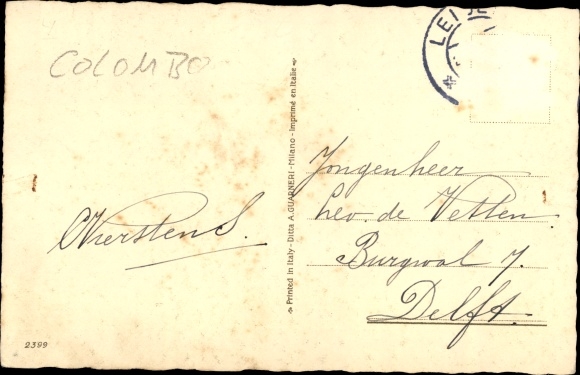 COLOMBO
LEI
Printed in Italy - Ditta A. GUARNERI - Milano - Imprimé en Italie
Jongenheer
de Vetten
Burgwal 7.
Delft.
2399